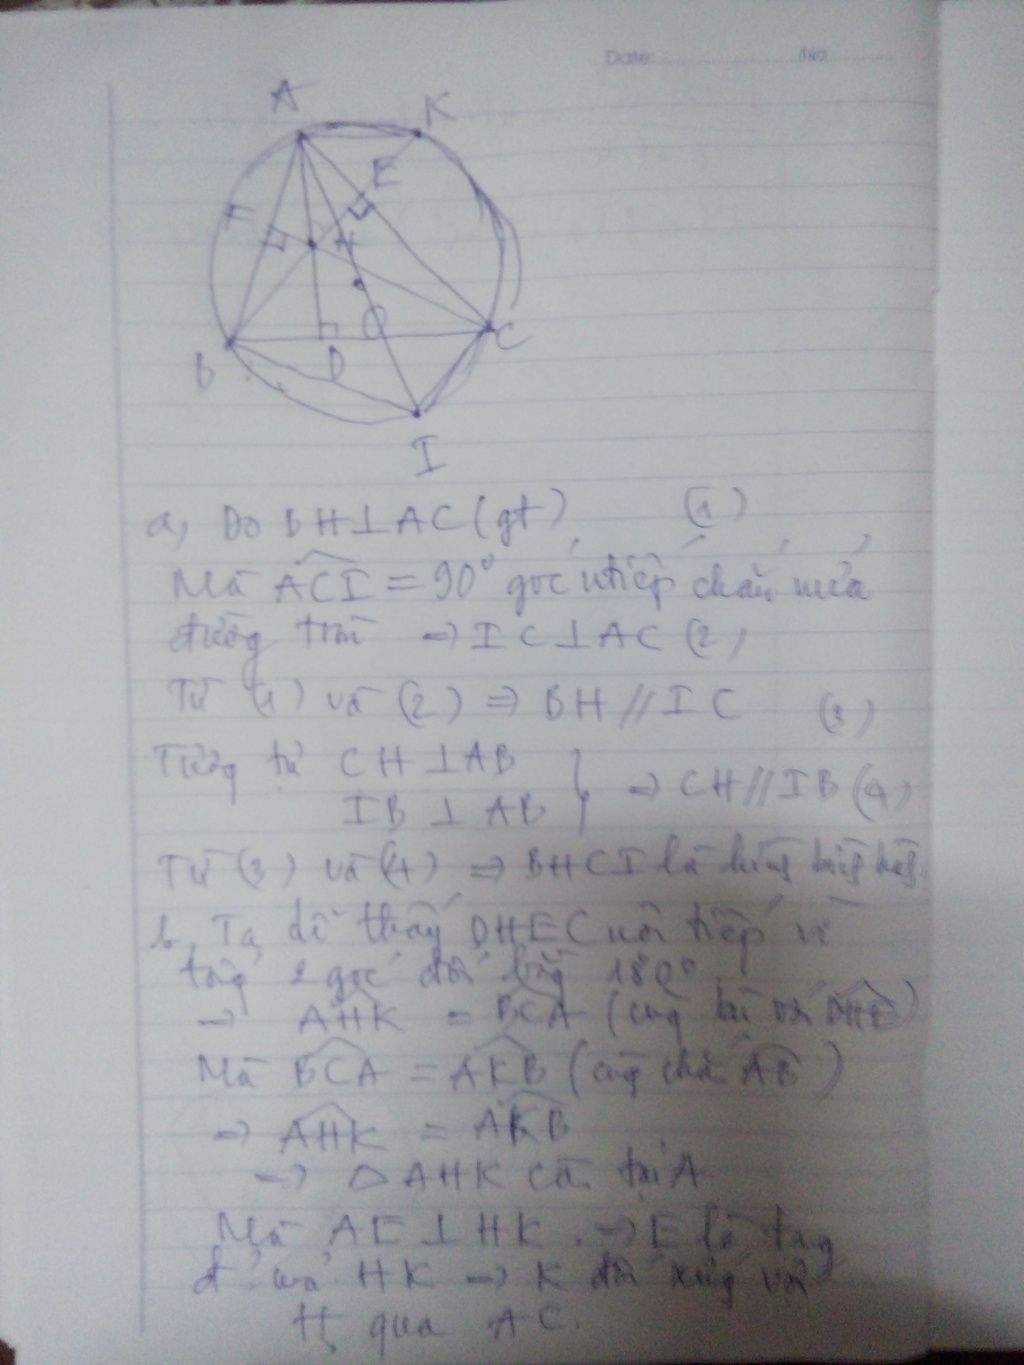 Date: No
A K
E
F
H
O
B D C
I
a, Do BH⊥AC (gt) (1)
Mà ACI = 90° góc ntiếp chắn nửa
đường tròn → IC⊥AC (2)
Từ (1) và (2) => BH // IC (3)
Tương tự CH⊥AB
IB ⊥ AB } → CH // IB (4)
Từ (3) và (4) => BHCI là hình bình hành.
b, Ta dễ thấy DHEC nội tiếp vì
tổng 2 góc đối bằng 180°
→ AHK = BCA (cùng bù với DHE)
Mà BCA = AKB (cùng chắn AB)
→ AHK = AKB
→ △AHK cân tại A
Mà AE⊥HK → E là trung
đ' của HK → K đối xứng với
H qua AC.